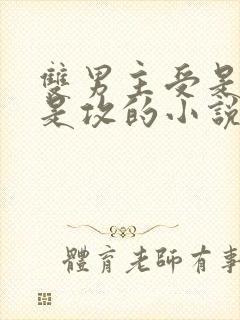 雙男主受是
是攻的小說
體育老師有事